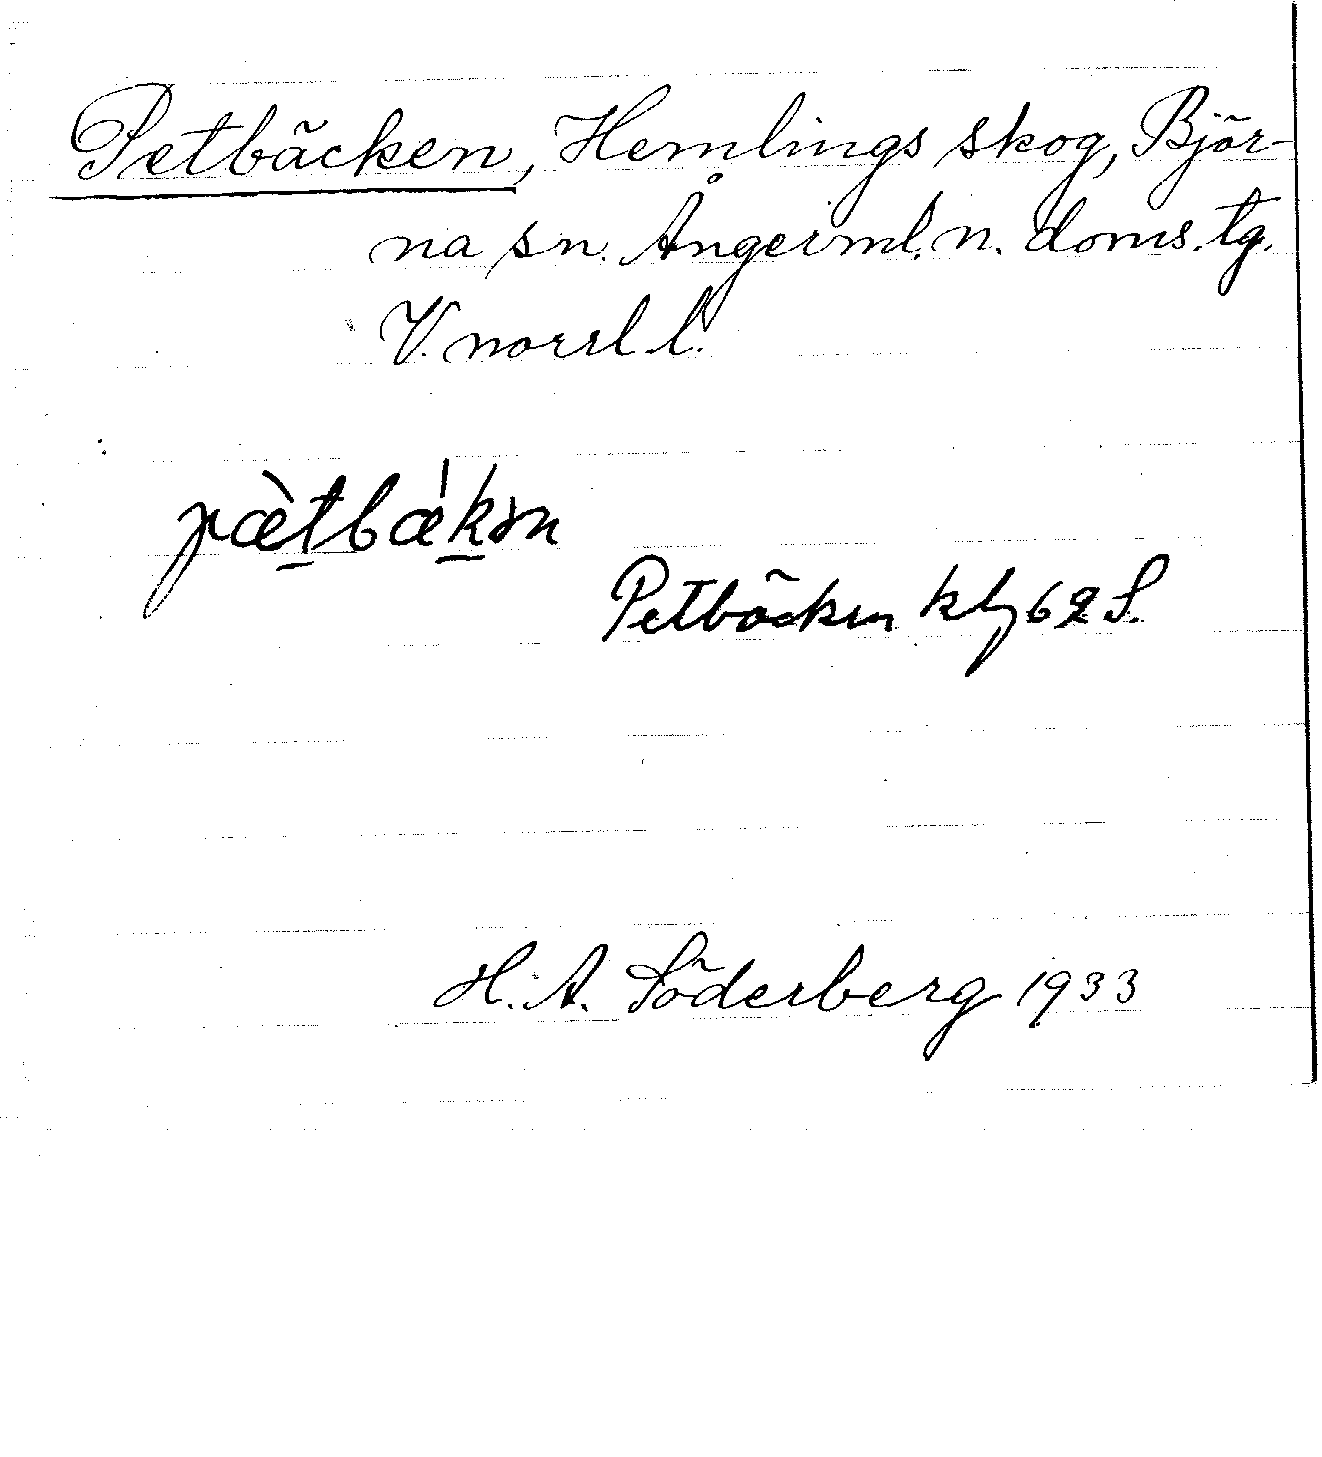 Petbäcken, Hemlings skog, Björ-
na sn. Ångerml. n. doms. tg.
V. norrl. l.
pæ̀t̠bǽk̠ən
Petbäcken kbl 62 S.
H. A. Söderberg 1933